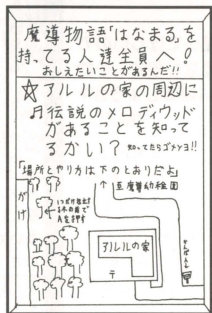 魔導物語「はなまる」を
持ってる人達全員へ!
おしえたいことがあるんだ!!
☆アルルの家の周辺に
♬伝説のメロディウッド
があることを知って
るかい? 知ってたらゴメンヨ!!
「場所とやり方は下のとおりだよ」
↑魔導幼稚園
がけ
Aを押す
アルルの家
〒